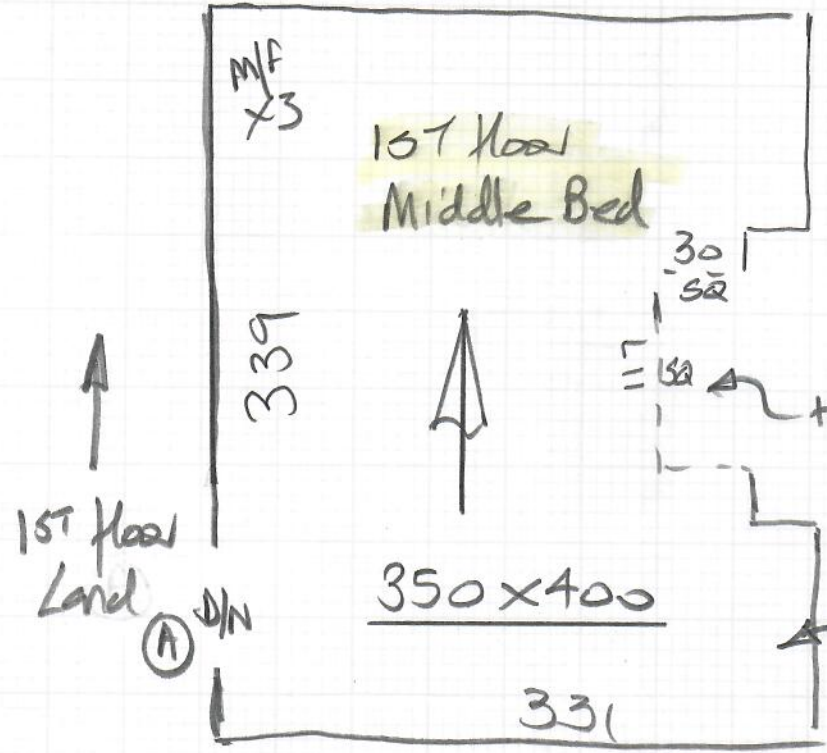 M/F
x3
1ST floor
Middle Bed
30
SQ
339
117
SQ
1ST floor
Land
A
D/N
350 x 400
331